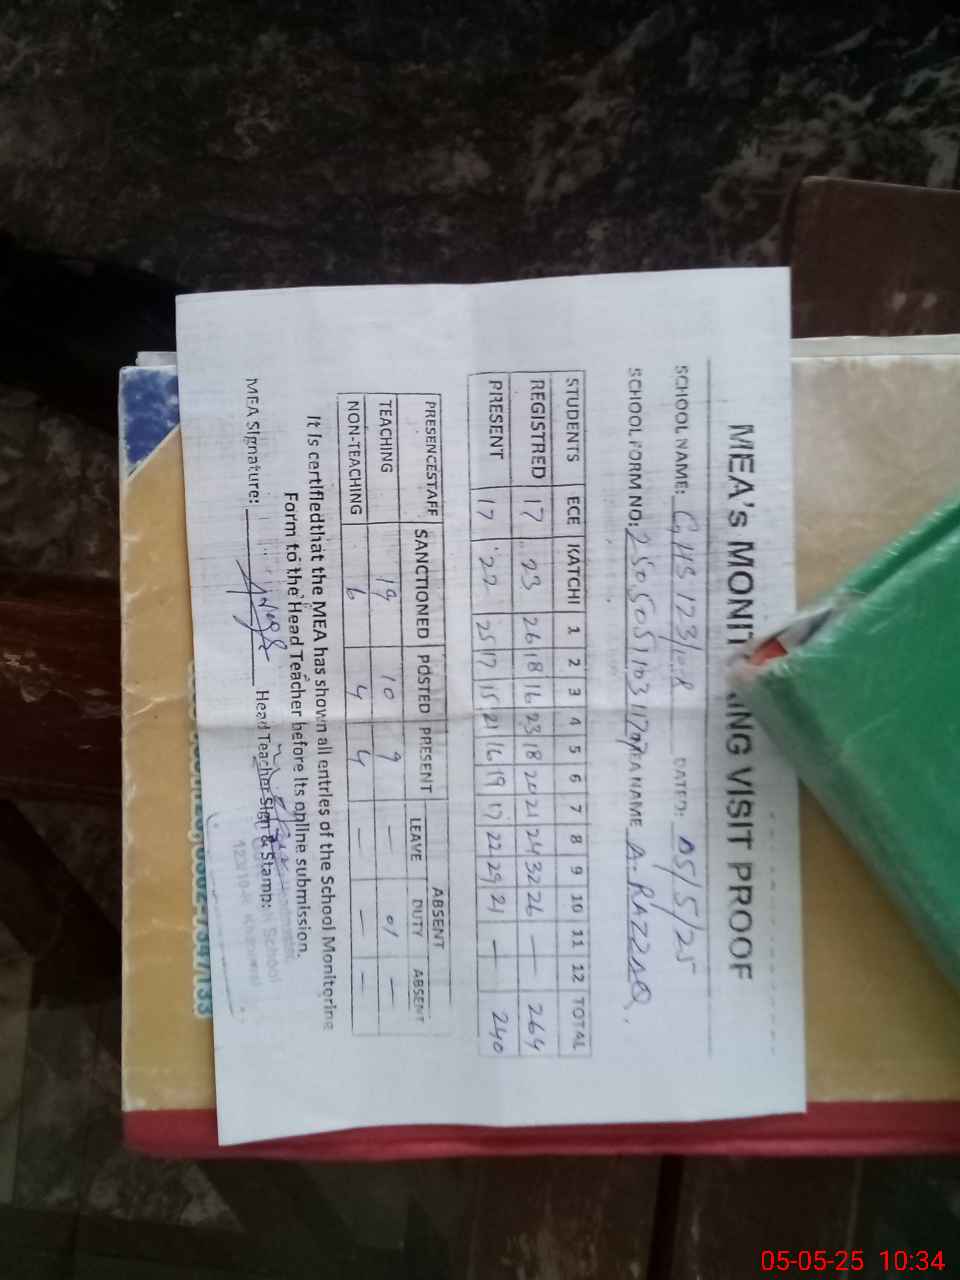 MEA's MONIT ING VISIT PROOF
SCHOOL NAME: GHS 123/10R DATED: 05/5/25
SCHOOL FORM NO: MEA NAME A. RAZZAQ.
STUDENTS ECE KATCHI 1 2 3 4 5 6 7 8 9 10 11 12 TOTAL
REGISTRED 17 23 26 18 16 23 18 20 21 24 32 26 — 264
PRESENT 17 22 25 17 15 21 16 19 17 22 29 21 — 240
ABSENT
PRESENCESTAFF SANCTIONED POSTED PRESENT LEAVE DUTY ABSENT
TEACHING 19 10 9 — 01 —
NON-TEACHING 6 4 4 — — —
It is certifiedthat the MEA has shown all entries of the School Monitoring
Form to the Head Teacher before its online submission.
MEA Signature: Head Teacher Sign & Stamp:
School
05-05-25 10:34